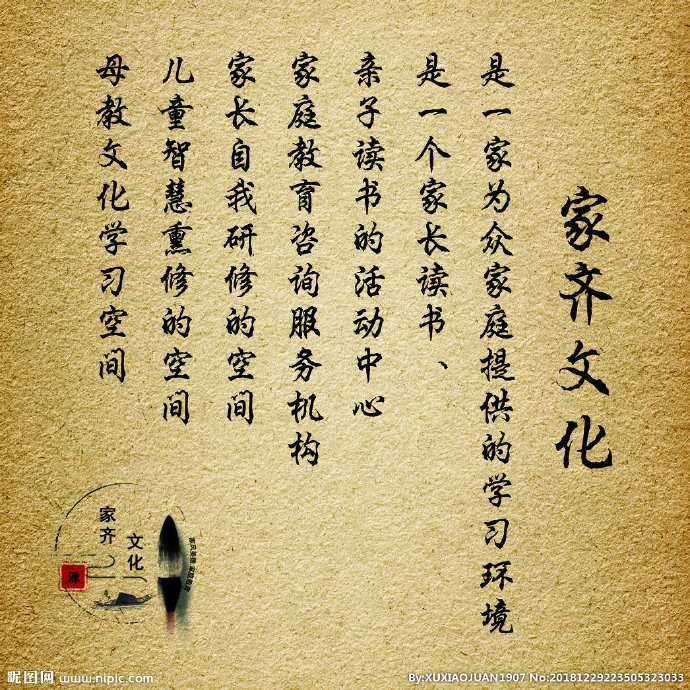 家齐文化
是一家为众家庭提供的学习环境
是一个家长读书、
亲子读书的活动中心
家庭教育咨询服务机构
家长自我研修的空间
儿童智慧熏修的空间
母教文化学习空间
家齐
文化
源
昵图网 www.nipic.com
By:XUXIAOJUAN1907 No:20181229223505323033